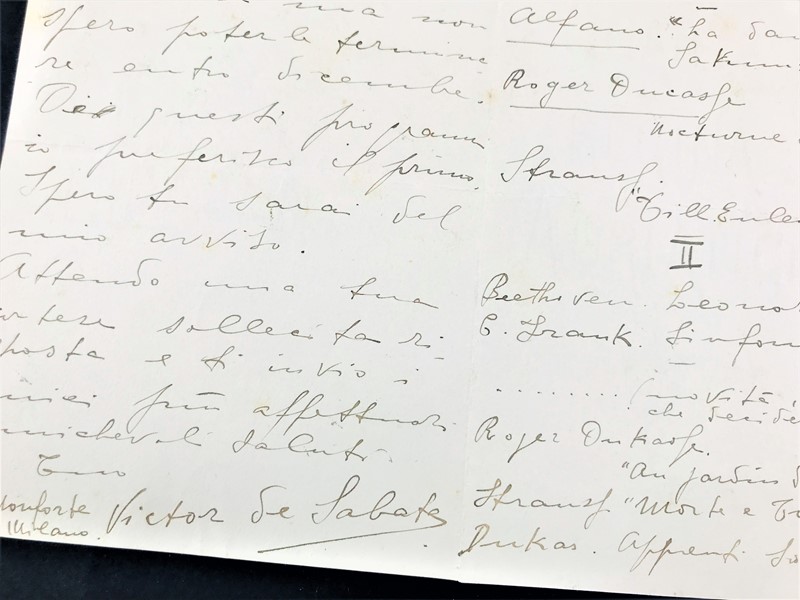 ma non
spero poterla termina
re entro dicembre.
Di questi programmi
io preferisco il primo.
Spero tu sarai del
mio avviso.
Attendo una tua
cortese sollecita ri-
sposta e ti invio i
miei più affettuosi
amichevoli saluti.
Tuo
Victor de Sabata
Monforte
Milano.
Alfano. "La dan
Sakun
Roger Ducasse
"Nocturne
Strauss.
"Till Eulen
II
Beethoven. Leonor
C. Frank. Sinfon
.......... (novità,
che deside
Roger Dukasse.
"Au jardin d
Strauss. "Morte e Tr
Dukas. Apprenti So